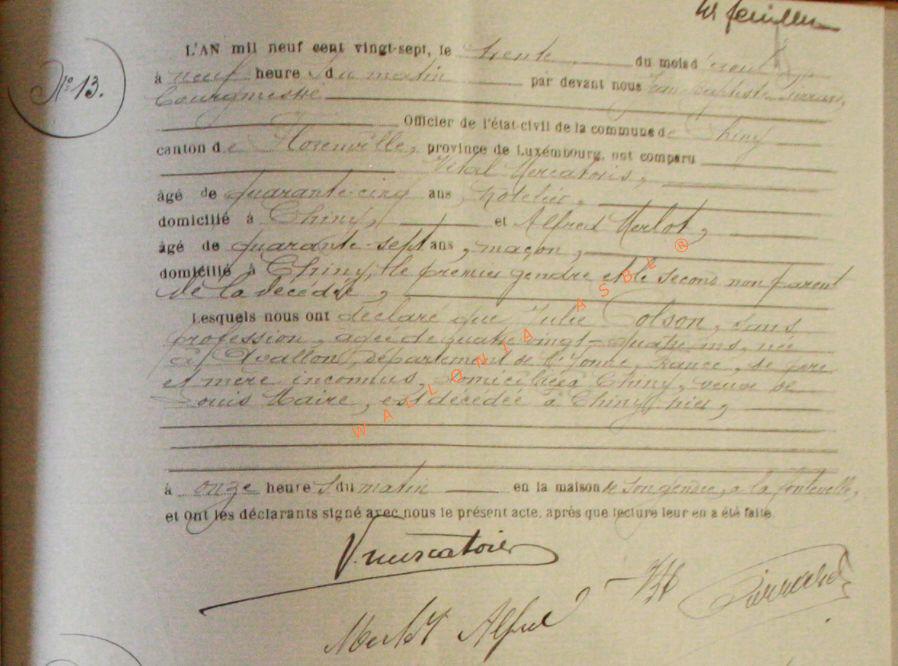 feuillet
N° 13.
L'AN mil neuf cent vingt-sept, le trente, du mois d'août
à neuf heures du matin par devant nous Jean Baptiste Pierrard,
Bourgmestre
Officier de l'état-civil de la commune de Chiny
canton de Florenville, province de Luxembourg, ont comparu
Vital Mercatoris,
âgé de quarante-cinq ans, hôtelier,
domicilié à Chiny, et Alfred Merlot,
âgé de quarante-sept ans, maçon,
domicilié à Chiny, le premier gendre et le second non parent
de la décédée,
Lesquels nous ont déclaré que Julie Colson, sans
profession, âgée de quatre-vingt-quatre ans, née
à Avallon, département de l'Yonne, France, de père
et mère inconnus, domiciliée à Chiny, veuve de
Louis Maire, est décédée à Chiny, hier,
à onze heures du matin en la maison de son gendre, à la fontenelle,
et ont les déclarants signé avec nous le présent acte, après que lecture leur en a été faite.
V. mercatoris
Merlot Alfred
Pierrard
WALLONIA ASBL ®